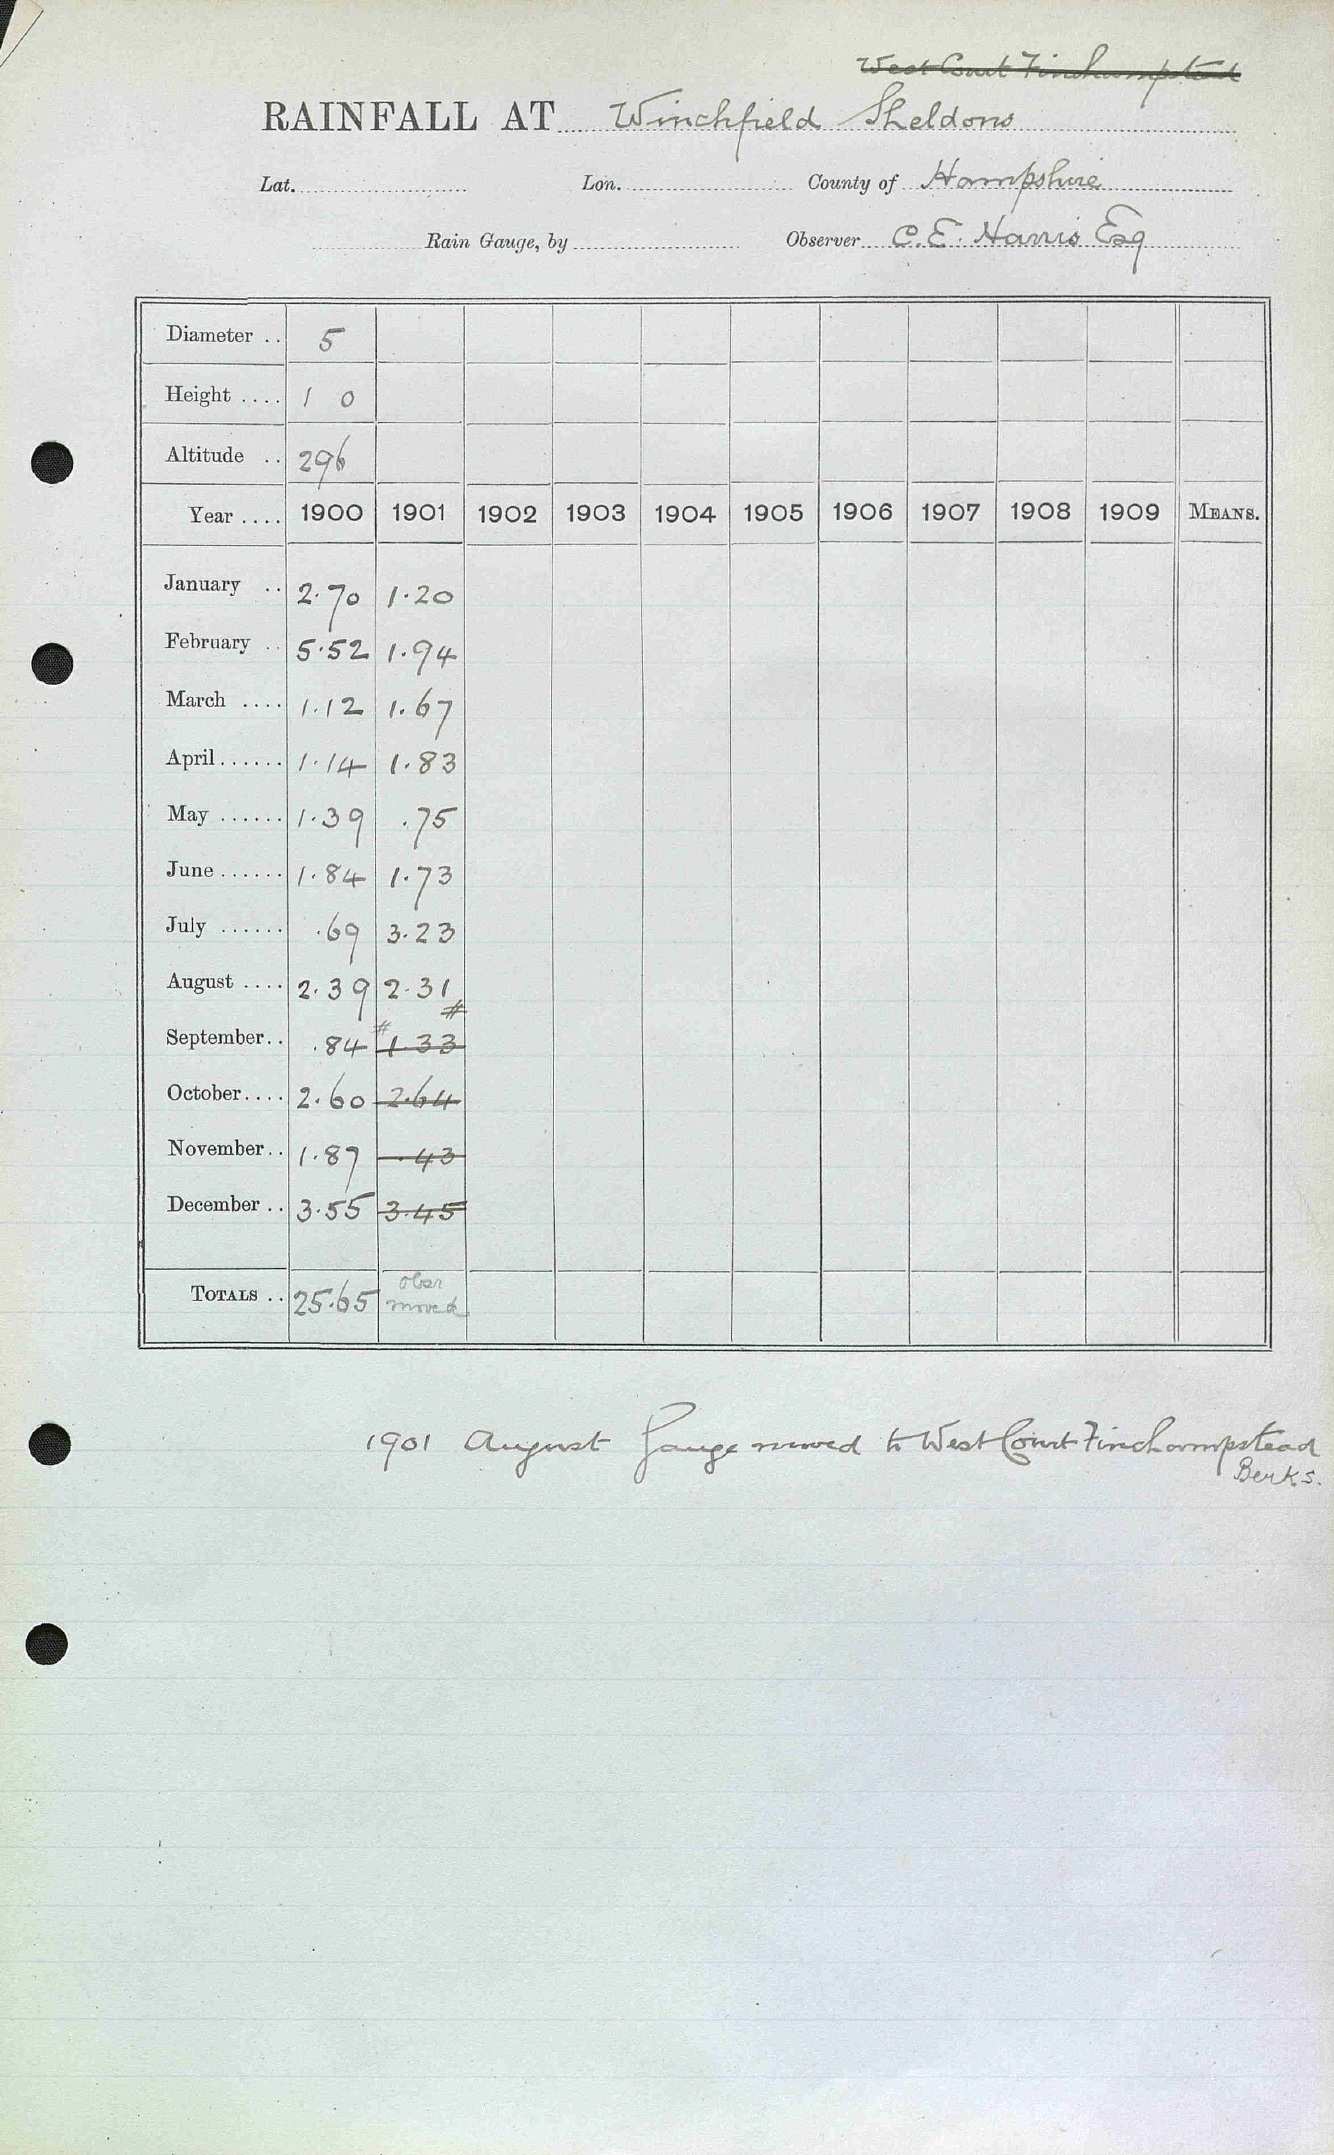 West Court Finchampstead
RAINFALL AT Winchfield Sheldons
Lat. Lon. County of Hampshire
Rain Gauge, by Observer C. E. Harris Esq
Diameter .. 5
Height .... 1 0
Altitude .. 296
Year .... 1900 1901 1902 1903 1904 1905 1906 1907 1908 1909 MEANS.
January .. 2.70 1.20
February .. 5.52 1.94
March .... 1.12 1.67
April...... 1.14 1.83
May ...... 1.39 .75
June ...... 1.84 1.73
July ...... .69 3.23
August .... 2.39 2.31 #
September.. .84 # 1.33
October.... 2.60 2.64
November.. 1.87 .43
December .. 3.55 3.45
TOTALS .. 25.65 obsr
moved
1901 August Gauge moved to West Court Finchampstead
Berks.